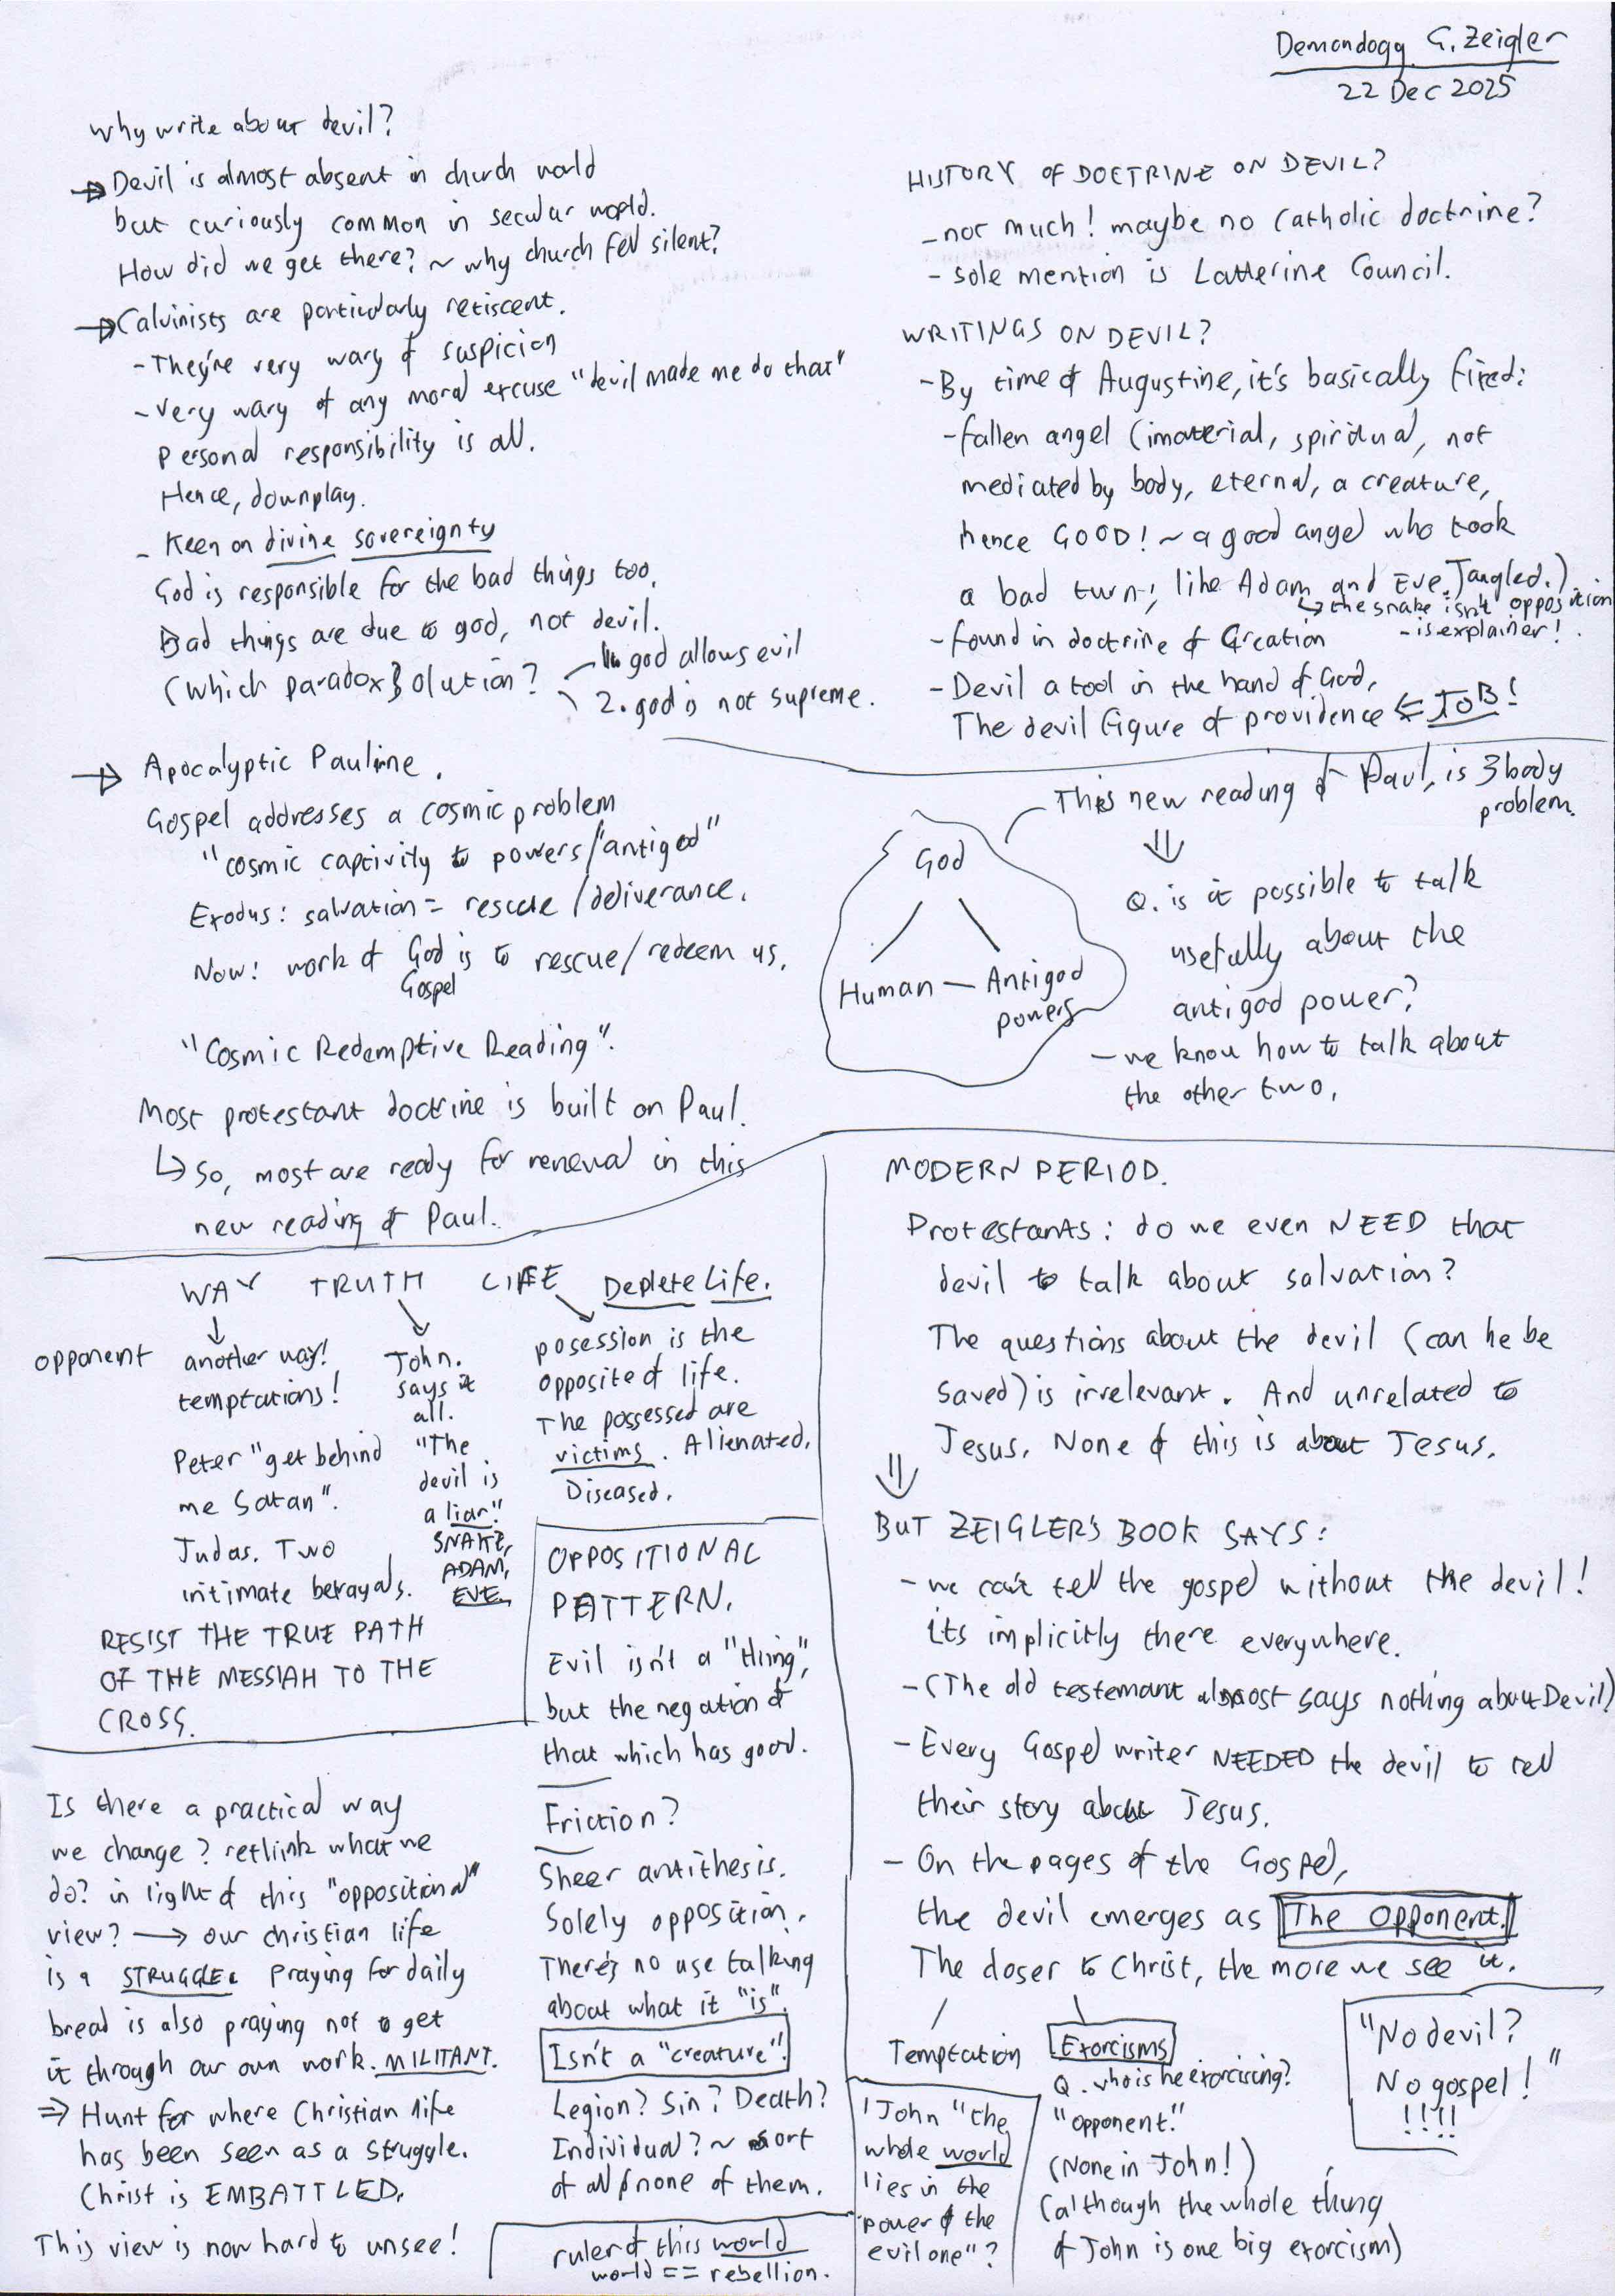 Demondogy G. Zeigler
22 Dec 2025
Why write about devil?
→ Devil is almost absent in church world
but curiously common in secular world.
How did we get there? ~ why church fell silent?
→ Calvinists are particularly retiscent.
- They're very wary of suspicion
- Very wary of any moral excuse "devil made me do that"
Personal responsibility is all.
Hence, downplay.
- Keen on divine sovereignty
God is responsible for the bad things too.
Bad things are due to god, not devil.
(which paradox solution?
1. god allows evil
2. god is not supreme.
→ Apocalyptic Pauline.
Gospel addresses a cosmic problem
"cosmic captivity to powers/"antigod"
Exodus: salvation = rescue / deliverance.
Now: work of God is to rescue/redeem us.
Gospel
"Cosmic Redemptive Reading".
Most protestant doctrine is built on Paul.
↳ So, most are ready for renewal in this
new reading of Paul.
HISTORY OF DOCTRINE ON DEVIL?
- not much! maybe no Catholic doctrine?
- sole mention is Latterine Council.
WRITINGS ON DEVIL?
- By time of Augustine, it's basically fixed:
- fallen angel (imaterial, spiritual, not
mediated by body, eternal, a creature,
hence GOOD! ~ a good angel who took
a bad turn; like Adam and Eve. Tangled.)
↳ the snake isn't opposition
- is explainer!
- found in doctrine of Creation
- Devil a tool in the hand of God,
The devil figure of providence ⇐ JOB!
This new reading of Paul, is 3 body
problem.
God
Human — Antigod
powers
⇓
Q. is it possible to talk
usefully about the
antigod power?
- we know how to talk about
the other two.
WAY TRUTH LIFE Deplete Life.
opponent
another way!
temptations!
Peter "get behind
me Satan".
Judas. Two
intimate betrayals.
RESIST THE TRUE PATH
OF THE MESSIAH TO THE
CROSS.
John.
says it
all.
"The
devil is
a liar."
SNAKE,
ADAM,
EVE.
posession is the
opposite of life.
The possessed are
victims. Alienated.
Diseased.
OPPOSITIONAL
PATTERN.
Evil isn't a "thing",
but the negation of
that which has good.
Friction?
Sheer antithesis.
Solely opposition.
There's no use talking
about what it "is".
Isn't a "creature".
Legion? Sin? Death?
Individual? ~ sort
of all/none of them.
ruler of this world
world == rebellion.
Is there a practical way
we change? rethink what we
do? in light of this "oppositional"
view? → our christian life
is a STRUGGLE. Praying for daily
bread is also praying not to get
it through our own work. MILITANT.
⇒ Hunt for where Christian life
has been seen as a struggle.
Christ is EMBATTLED.
This view is now hard to unsee!
MODERN PERIOD.
Protestants: do we even NEED that
devil to talk about salvation?
The questions about the devil (can he be
saved) is irrelevant. And unrelated to
Jesus. None of this is about Jesus.
⇓
BUT ZEIGLER'S BOOK SAYS:
- we can't tell the gospel without the devil!
its implicitly there everywhere.
- (The old testemant almost says nothing about Devil)
- Every Gospel writer NEEDED the devil to tell
their story about Jesus.
- On the pages of the Gospel,
the devil emerges as The Opponent.
The closer to Christ, the more we see it.
Temptation
Exorcisms
Q. who is he exorcising?
"opponent."
(None in John!)
(although the whole thing
of John is one big exorcism)
1 John "the
whole world
lies in the
power of the
evil one"?
"No devil?
No gospel!"
!!!!